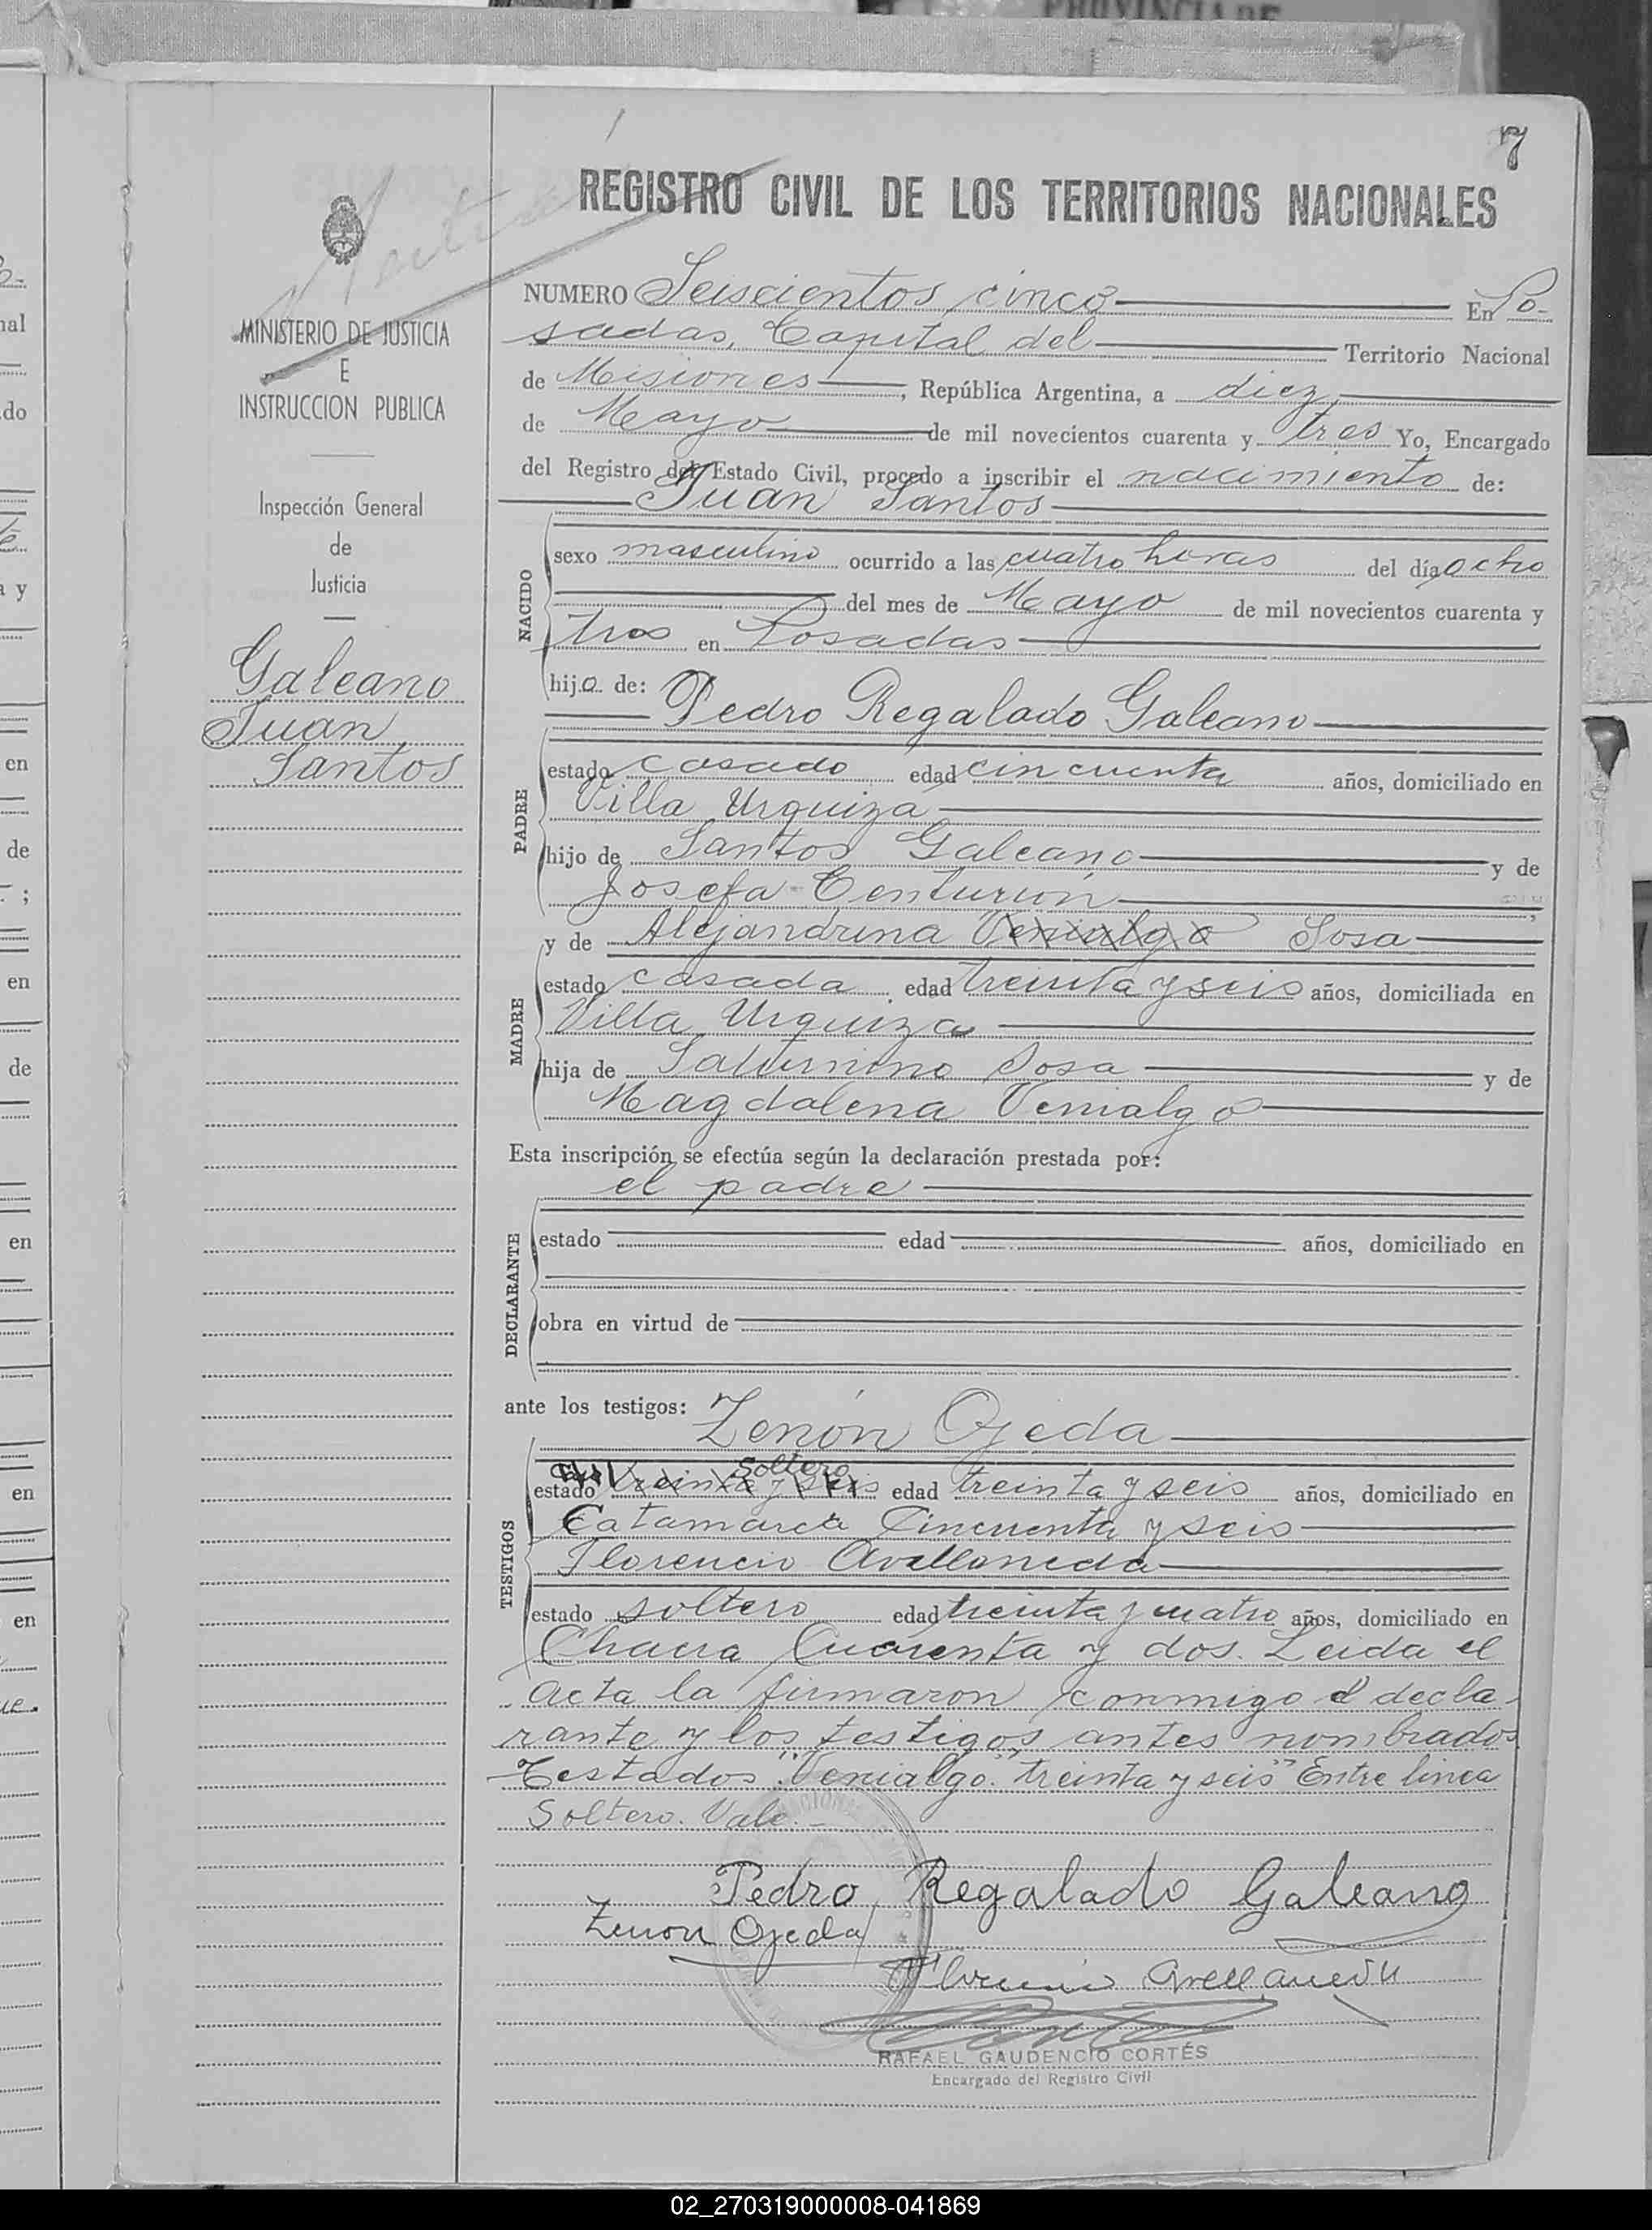 PROVINCIA DE
7
REGISTRO CIVIL DE LOS TERRITORIOS NACIONALES
MINISTERIO DE JUSTICIA
E
INSTRUCCION PUBLICA
Inspección General
de
Justicia
Galeano
Juan
Santos
NUMERO Seiscientos cinco En Po-
sadas, Capital del Territorio Nacional
de Misiones, República Argentina, a diez
de Mayo de mil novecientos cuarenta y tres Yo, Encargado
del Registro del Estado Civil, procedo a inscribir el nacimiento de:
Juan Santos
NACIDO
sexo masculino ocurrido a las cuatro horas del día ocho
del mes de Mayo de mil novecientos cuarenta y
tres en Posadas
hijo de:
Pedro Regalado Galeano
PADRE
estado casado edad cincuenta años, domiciliado en
Villa Urquiza
hijo de Santos Galeano y de
Josefa Centurión
y de Alejandrina Venialgo Sosa
MADRE
estado casada edad treinta y seis años, domiciliada en
Villa Urquiza
hija de Saturnino Sosa y de
Magdalena Venialgo
Esta inscripción se efectúa según la declaración prestada por:
el padre
DECLARANTE
estado edad años, domiciliado en
obra en virtud de
ante los testigos:
Zenón Ojeda
TESTIGOS
soltero
estado treinta y seis edad treinta y seis años, domiciliado en
Catamarca Cincuenta y seis
Florencio Avellaneda
estado soltero edad treinta y cuatro años, domiciliado en
Chacra Cuarenta y dos. Leida el
acta la firmaron conmigo el decla-
rante y los testigos antes nombrados
Testados "Venialgo. treinta y seis" Entre linea
Soltero. Vale.-
Pedro Regalado Galeano
Zenon Ojeda
Florencio Avellaneda
RAFAEL GAUDENCIO CORTÉS
Encargado del Registro Civil
02_270319000008-041869